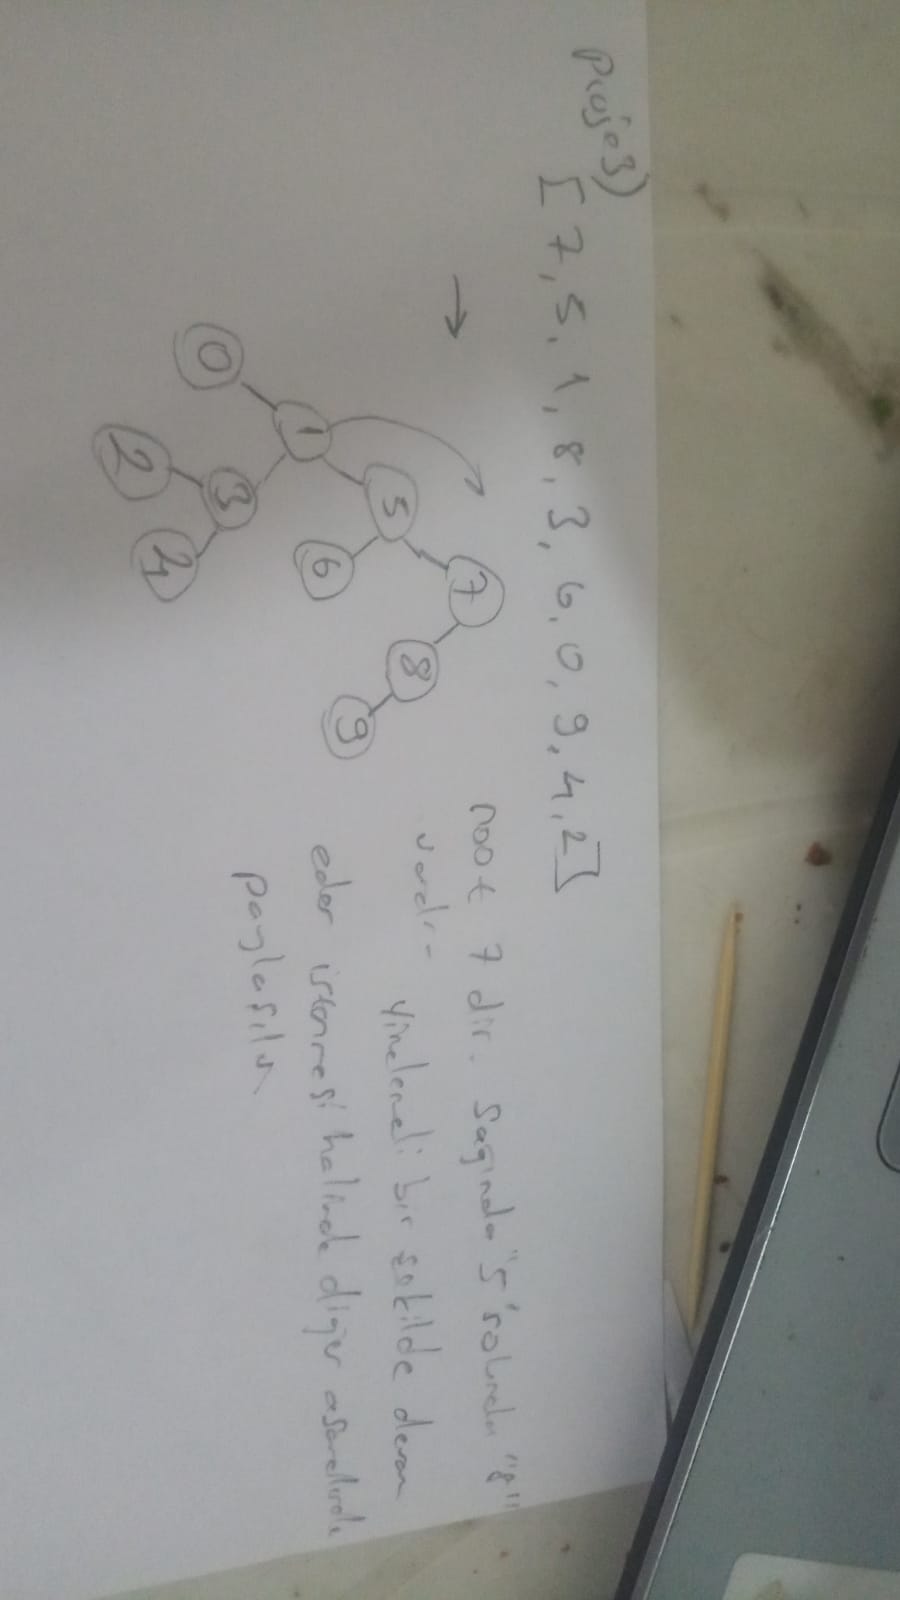 Proje 3)
[7, 5, 1, 8, 3, 6, 0, 9, 4, 2]
→
7
5 8
1 6 9
0 3
2 4
root 7 dir. Sağında "5" solunda "8"
vardır. Yinelemeli bir şekilde devam
eder istenmesi halinde diğer aşamalarıda
paylaşılır